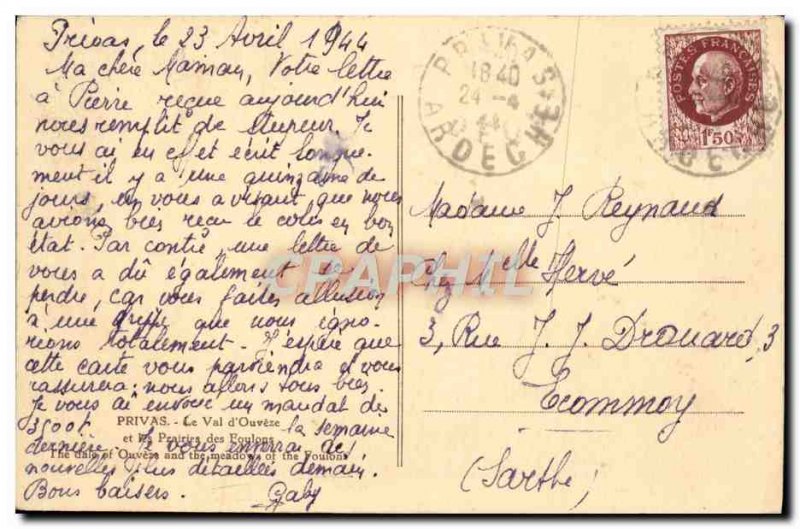 Privas, le 23 Avril 1944
Ma chère Maman, Votre lettre
à Pierre reçue aujourd'hui
nous remplit de stupeur. Je
vous ai en effet écrit longue-
ment il y a une quinzaine de
jours, en vous avisant que nous
avions bien reçu le colis en bon
état. Par contre, une lettre de
vous a dû également se
perdre, car vous faites allusion
à une que nous igno-
rions totalement. J'espère que
cette carte vous parviendra et vous
rassurera: nous allons tous bien.
Je vous ai envoyé un mandat de
3500f. la semaine
dernière. Je vous enverrai des
nouvelles plus détaillées demain.
Bons baisers. Gaby
PRIVAS. - Le Val d'Ouvèze
et les Prairies des Foulons
The dale of Ouvèze and the meadows of the Foulons
PRIVAS
1840
24 -4
44
ARDECHE
POSTES FRANÇAISES
1F50
ARDECHE
Madame J. Reynaud
Chez Melle Hervé
3, Rue J. J. Drouard, 3
Ecommoy
(Sarthe)
CPAPHIL